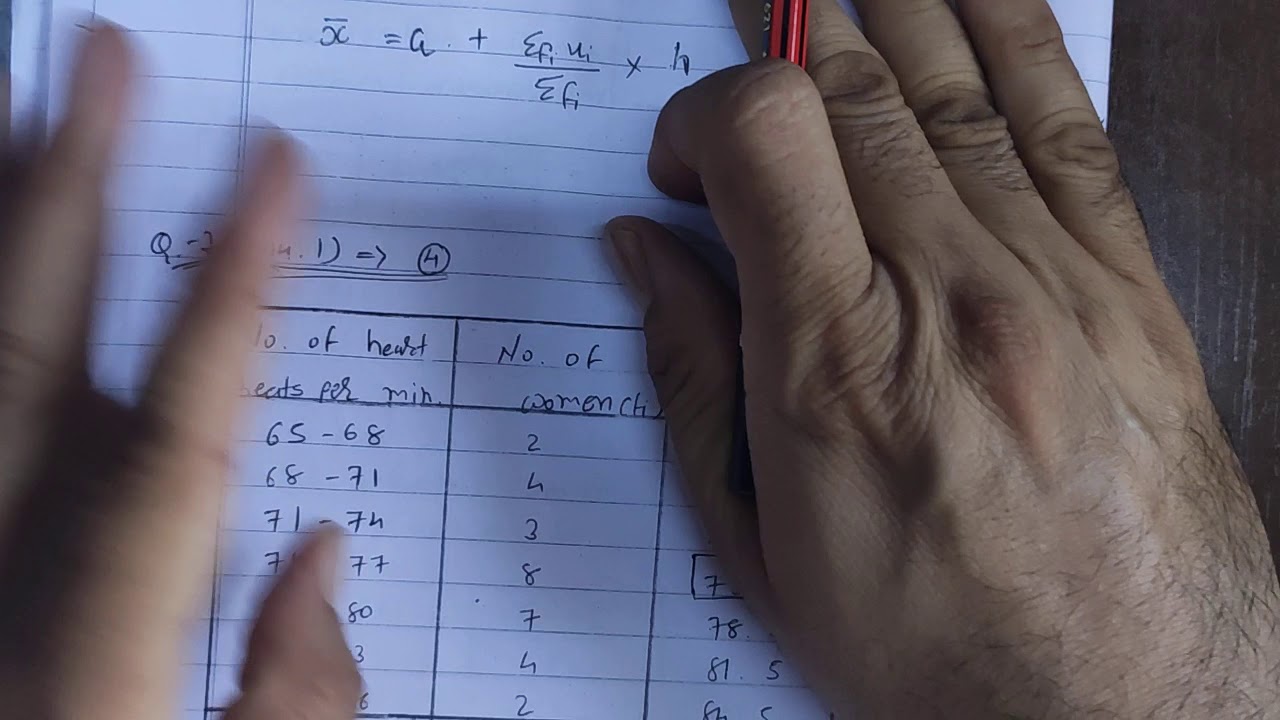 x̄ = a + Σfᵢuᵢ / Σfᵢ × h
Q. 1) => ④
No. of heart beats per min. No. of women (fi
65 - 68 2
68 - 71 4
71 - 74 3
77 8
80 7 78.
3 4 81.5
6 2 84.5